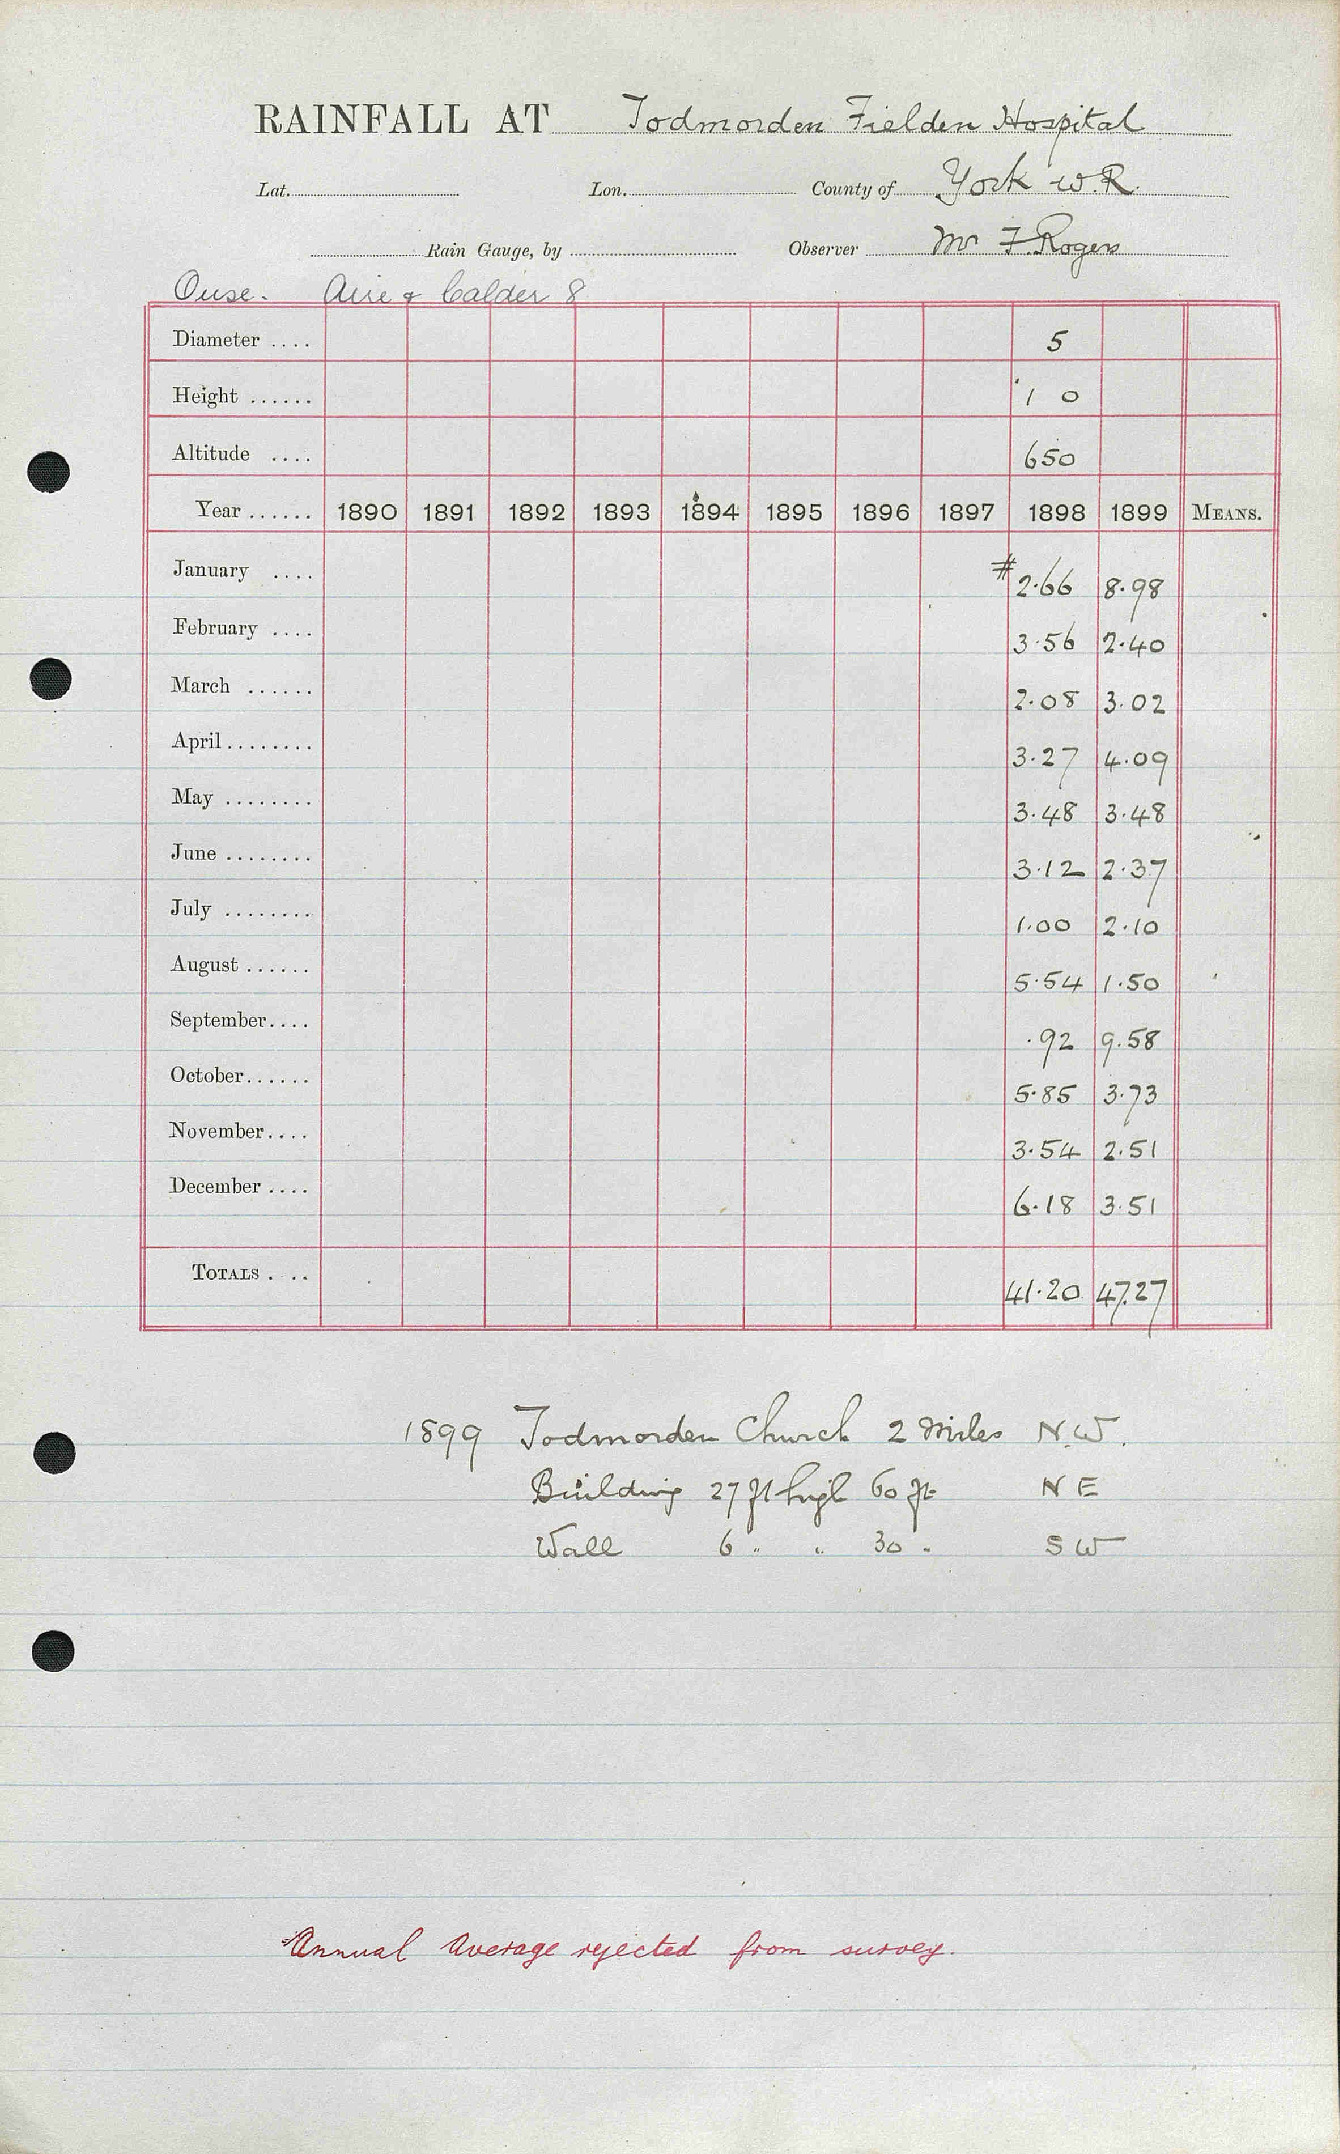 RAINFALL AT Todmorden Fielden Hospital
Lat. Lon. County of York W.R.
Rain Gauge, by Observer Mr F. Rogers
Ouse. Aire & Calder 8
Diameter .... 5
Height ...... 1 0
Altitude .... 650
Year ...... 1890 1891 1892 1893 1894 1895 1896 1897 1898 1899 MEANS.
January .... # 2.66 8.98
February .... 3.56 2.40
March ...... 2.08 3.02
April ........ 3.27 4.09
May ........ 3.48 3.48
June ........ 3.12 2.37
July ........ 1.00 2.10
August ...... 5.54 1.50
September.... .92 9.58
October...... 5.85 3.73
November.... 3.54 2.51
December .... 6.18 3.51
TOTALS .... 41.20 47.27
1899 Todmorden Church 2 Miles N.W.
Building 27 ft high 60 ft N E
Wall 6 " " 30 " S W
Annual Average rejected from survey.